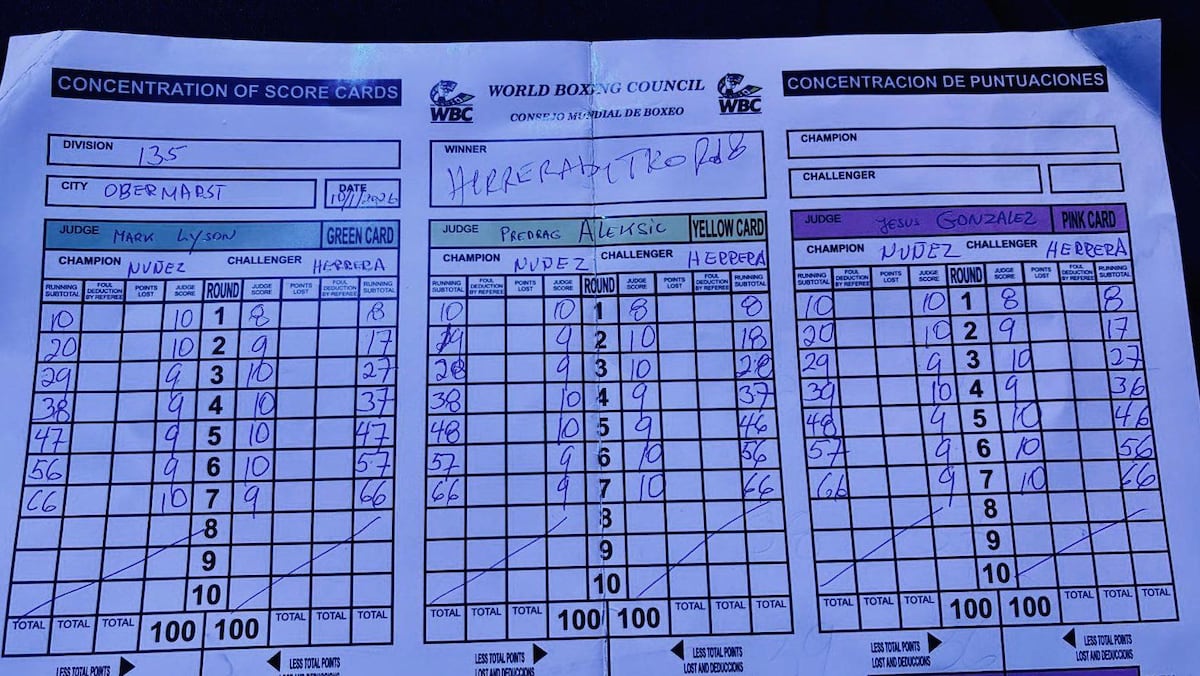 CONCENTRATION OF SCORE CARDS
WBC
WORLD BOXING COUNCIL
CONSEJO MUNDIAL DE BOXEO
WBC
CONCENTRACION DE PUNTUACIONES
DIVISION 135
WINNER
HERRERA BY TKO Rd 8
CHAMPION
CITY OBERMARST
DATE 10/1/2026
CHALLENGER
JUDGE MARK LYSON GREEN CARD
JUDGE PREDRAG ALEKSIC YELLOW CARD
JUDGE JESUS GONZALEZ PINK CARD
CHAMPION NUÑEZ CHALLENGER HERRERA
CHAMPION NUÑEZ CHALLENGER HERRERA
CHAMPION NUÑEZ CHALLENGER HERRERA
RUNNING SUBTOTAL FOUL DEDUCTION BY REFEREE POINTS LOST JUDGE SCORE ROUND JUDGE SCORE POINTS LOST FOUL DEDUCTION BY REFEREE RUNNING SUBTOTAL
RUNNING SUBTOTAL FOUL DEDUCTION BY REFEREE POINTS LOST JUDGE SCORE ROUND JUDGE SCORE POINTS LOST FOUL DEDUCTION BY REFEREE RUNNING SUBTOTAL
RUNNING SUBTOTAL FOUL DEDUCTION BY REFEREE POINTS LOST JUDGE SCORE ROUND JUDGE SCORE POINTS LOST FOUL DEDUCTION BY REFEREE RUNNING SUBTOTAL
10 10 1 8 8 10 10 1 8 8 10 10 1 8 8
20 10 2 9 17 19 9 2 10 18 20 10 2 9 17
29 9 3 10 27 28 9 3 10 28 29 9 3 10 27
38 9 4 10 37 38 10 4 9 37 39 10 4 9 36
47 9 5 10 47 48 10 5 9 46 48 9 5 10 46
56 9 6 10 57 57 9 6 10 56 57 9 6 10 56
66 10 7 9 66 66 9 7 10 66 66 9 7 10 66
8 8 8
9 9 9
10 10 10
TOTAL TOTAL TOTAL 100 100 TOTAL TOTAL TOTAL
TOTAL TOTAL TOTAL 100 100 TOTAL TOTAL TOTAL
TOTAL TOTAL TOTAL 100 100 TOTAL TOTAL TOTAL
LESS TOTAL POINTS LESS TOTAL POINTS
LESS TOTAL POINTS LESS TOTAL POINTS
LOST AND DEDUCCIONS LOST AND DEDUCCIONS
LESS TOTAL POINTS LESS TOTAL POINTS
LOST AND DEDUCCIONS LOST AND DEDUCCIONS